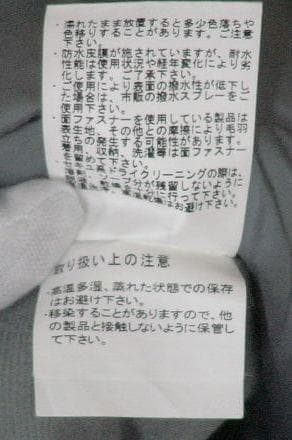 ・濡れたまま放置すると多少色落ちや
色移りすることがあります。ご注意
下さい。
・防水皮膜が施されていますが、耐水
性能は使用状況や経年変化により劣
化します。ご了承下さい。
・ご使用により表面の撥水性が低下し
た場合は、市販の撥水スプレーをご
使用下さい。
・面ファスナーを使用している製品は
表生地、その他との摩擦により毛羽
立ちの発生する可能性があります。
着用、収納、洗濯等は面ファスナー
を留めて下さい。
ドライクリーニングの際は、
分が残留しないように
に行って下さい。
はお避け下さい。
取り扱い上の注意
・高温多湿、蒸れた状態での保存
はお避け下さい。
・移染することがありますので、他
の製品と接触しないように保管し
て下さい。